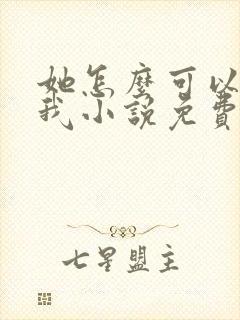 她怎麼可以
我小說免費
七星盟主